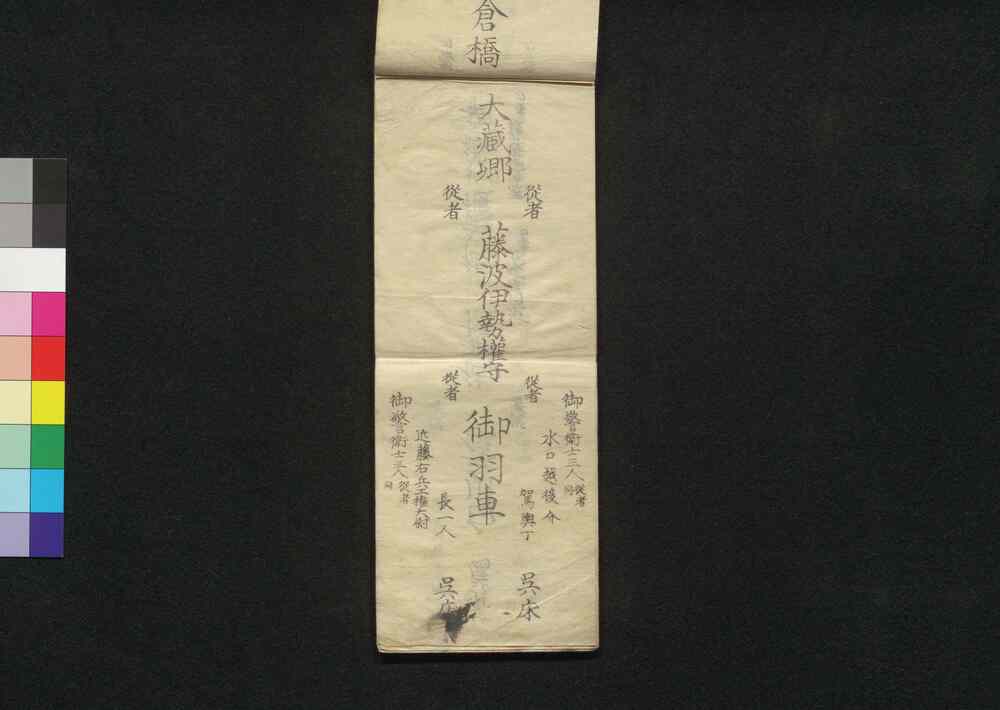 倉橋
大蔵卿
從者
從者
藤波伊勢權守
從者
從者
御警衛士三人從者同
水口越後介
駕輿丁
御羽車
長一人
近藤右兵衛權大尉
御警衛士三人從者同
呉床
呉床